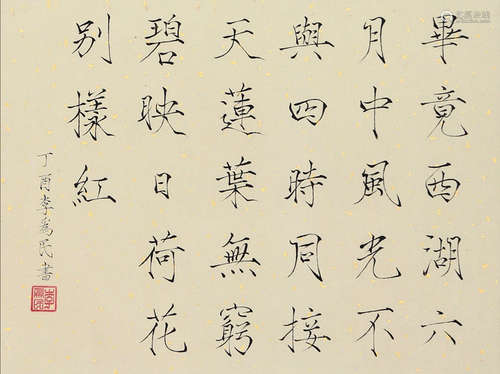 畢竟西湖六
月中風光不
與四時同接
天蓮葉無窮
碧映日荷花
別樣紅
丁酉李爲民書